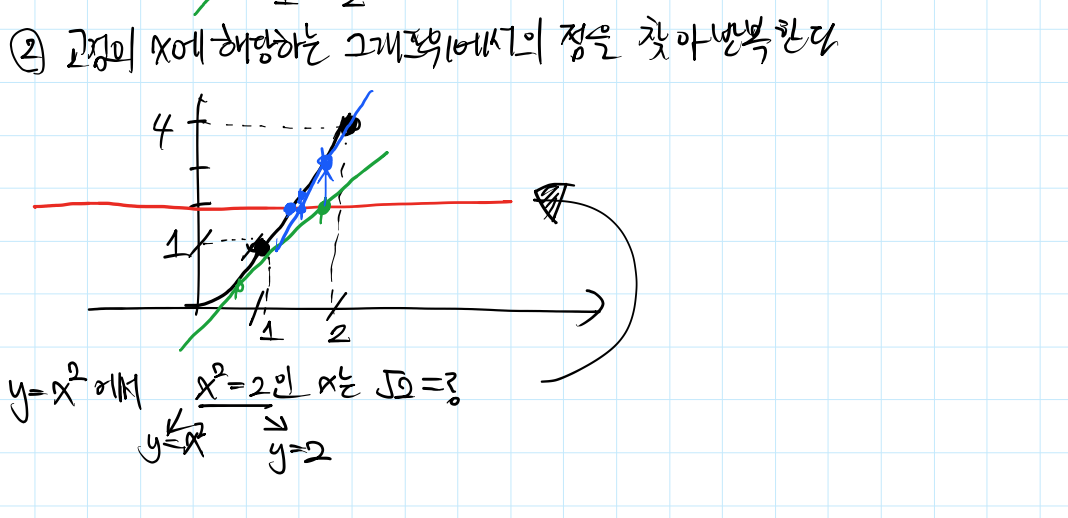 ② 교점의 x에 해당하는 그래프위에서의 점을 찾아 반복한다
4
1
1 2
y=x² 에서 x²=2인 x는 √2=?
y=x² y=2